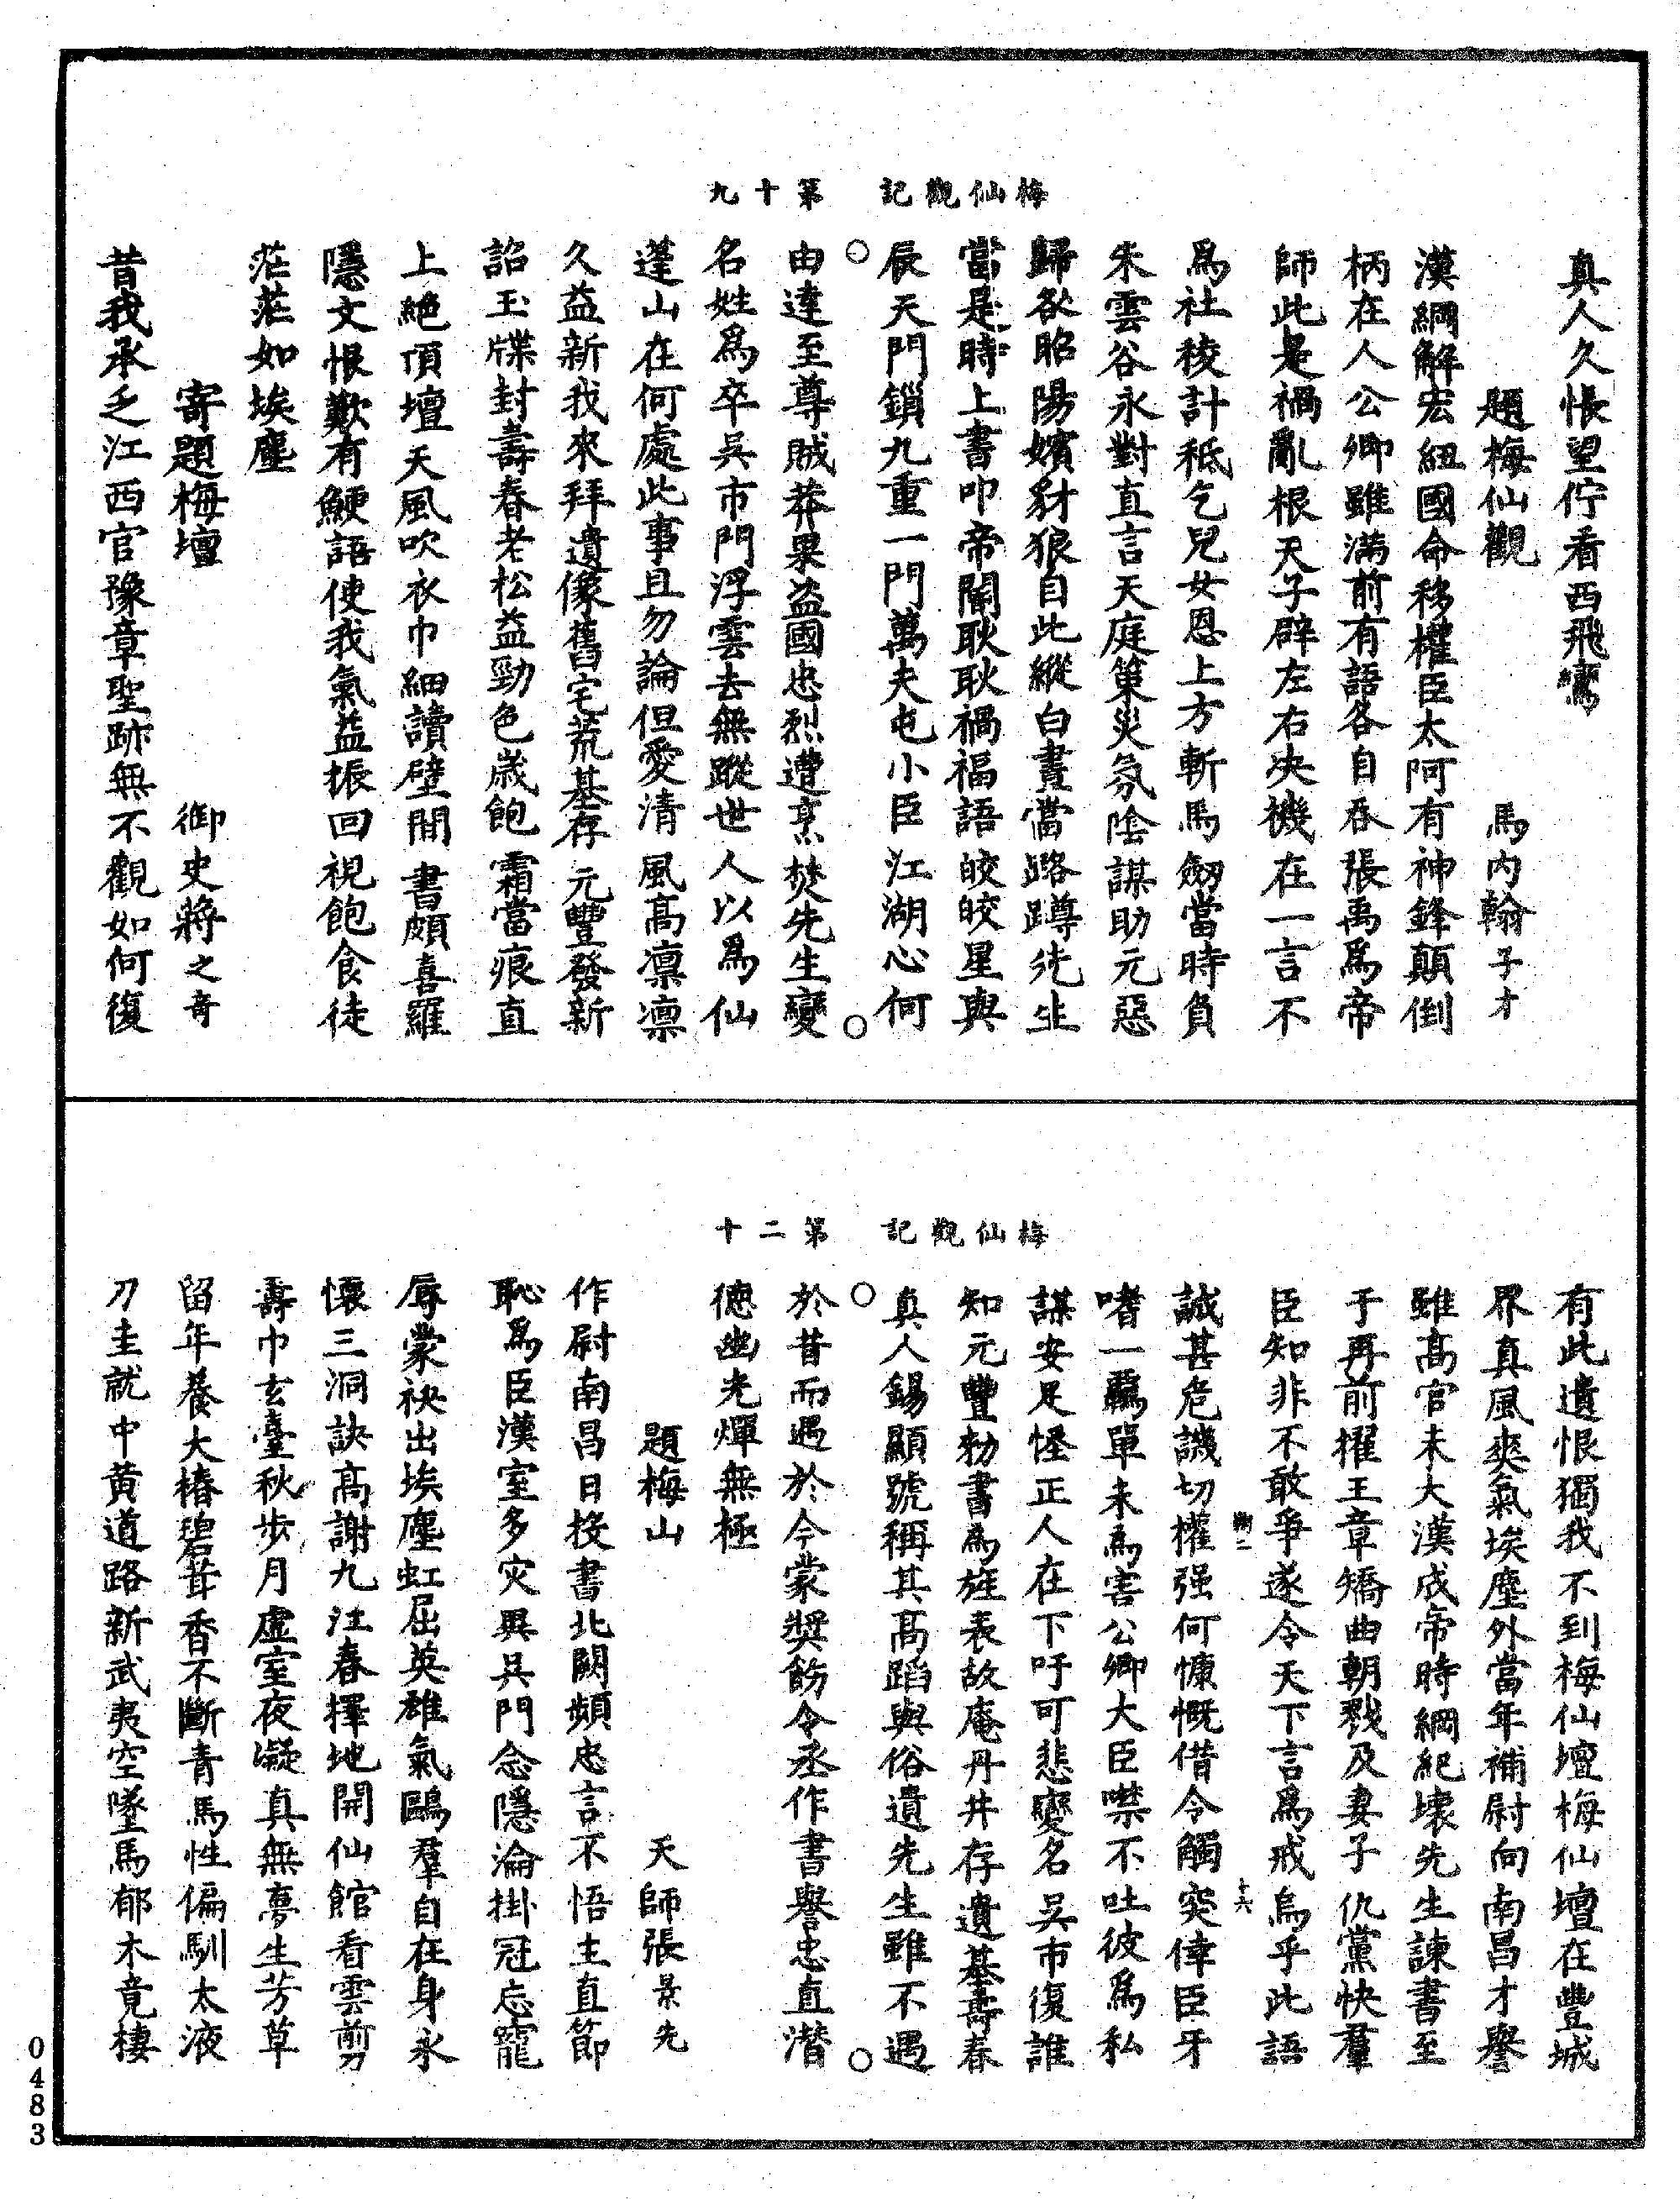 梅仙觀記　第十九
真人久悵望佇看西飛鸞
題梅仙觀　馬內翰子才
漢綱解宏紐國命移權臣太阿有神鋒顛倒
柄在人公卿雖滿前有語各自吞張禹爲帝
師此是禍亂根天子辟左右决機在一言不
爲社稜計秖乞兒女恩上方斬馬劒當時負
朱雲谷永對直言天庭策災氛陰謀助元惡
歸欲昭陽嬪豺狼自此縱白晝當路蹲先生
當是時上書叩帝閽耿耿禍福語皎皎星與
辰天門鎖九重一門萬夫屯小臣江湖心何
由達至尊賊莽果盜國忠烈遭烹焚先生變
名姓爲卒吳市門浮雲去無蹤世人以爲仙
蓬山在何處此事且勿論但愛清風高凛凛
久益新我來拜遺像舊宅荒基存元豐發新
詔玉牒封壽春老松益勁色歲飽霜當痕直
上絕頂壇天風吹衣巾細讀壁間書頗喜羅
隱文恨歎有鯁語使我氣益振回視飽食徒
茫茫如埃塵
寄題梅壇　御史蔣之奇
昔我承乏江西官豫章聖跡無不觀如何復
梅仙觀記　第二十
有此遺恨獨我不到梅仙壇梅仙壇在豐城
界真風爽氣埃塵外當年補尉向南昌才譽
雖高官未大漢成帝時綱紀壞先生諫書至
于再前擢王章矯曲朝戮及妻子仇黨快羣
臣知非不敢爭遂令天下言爲戒烏乎此語
誠甚危譏切權强何慷慨借令觸突倖臣牙
嗜一羈單未爲害公卿大臣噤不吐彼爲私
謀安足怪正人在下吁可悲變名吳市復誰
知元豐勑書爲旌表故庵丹井存遺基壽春
真人錫顯號稱其高蹈與俗遺先生雖不遇
於昔而遇於今蒙獎飭令丞作書譽忠直潛
德幽光燀無極
題梅山　天師張景先
作尉南昌日投書北闕頻忠言不悟主直節
恥爲臣漢室多灾異吳門念隱淪掛冠忘寵
辱蒙袂出埃塵虹屈英雄氣鷗羣自在身永
懷三洞訣高謝九江春擇地開仙館看雲剪
壽巾玄臺秋步月虛室夜凝真無夢生芳草
留年養大椿碧茸香不斷青馬性偏馴太液
刀圭就中黃道路新武夷空墜馬郁木竟棲
十六
0483